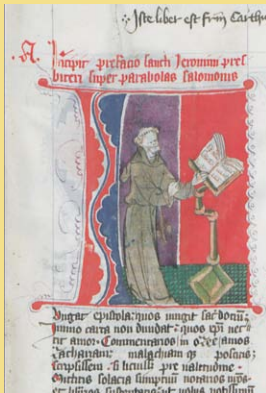 Iste liber est frm Carthu
Incipit prefacio sancti Jeronimi pres
biteri super parabolas salomonis
Ungat epistola quos iungit sacdotiu
immo carta non diuidat quos xpi nec
tit amor Commentarios in osee amos
zachariam malachiam qz poscitis
scripsissem si licuiss pre valitudine
Mittitis solacia sumptuu notarios nros
et libarios sustentatis ut nobis potissimu